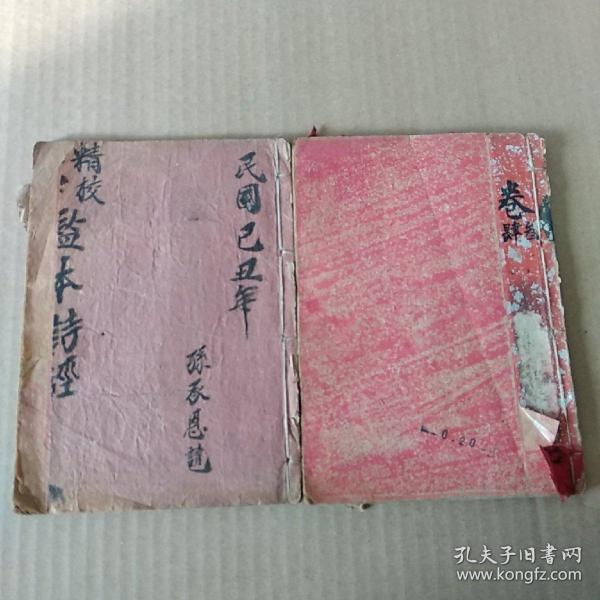 民國己丑年
孫承恩讀
精校
監本詩經
卷叁
肆
0.20
孔夫子旧书网
www.kongfz.com